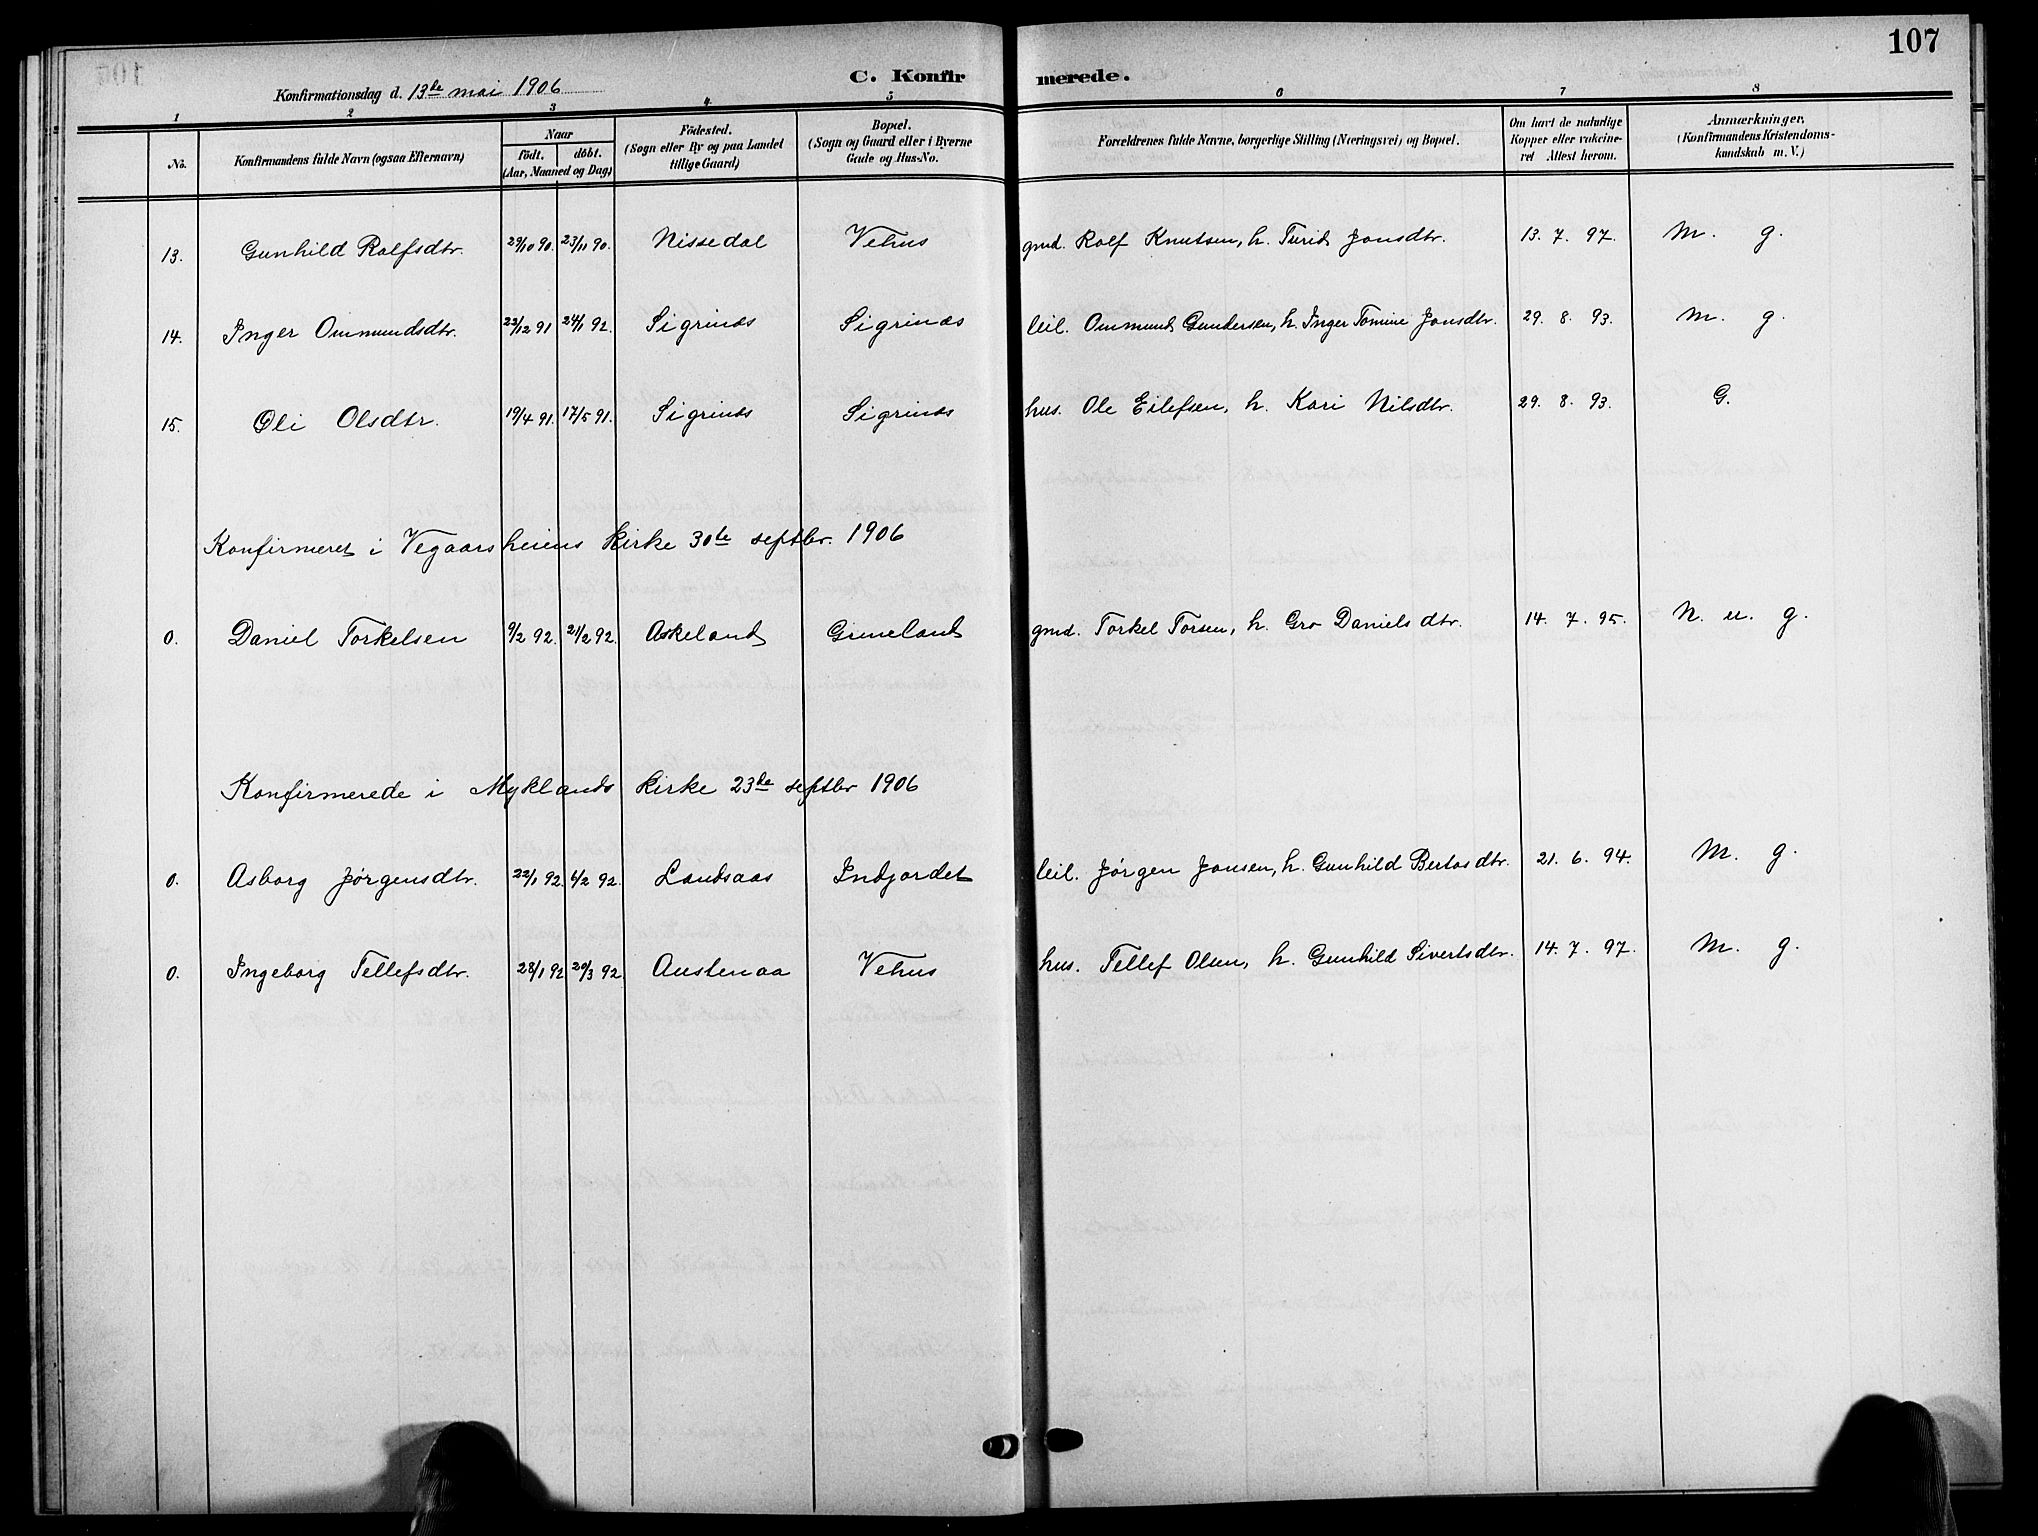 107
C. Konfirmerede.
Konfirmationsdag d. 13de mai 1906
1 2 3 4 5 6 7 8
No. Konfirmandens fulde Navn (ogsaa Efternavn) Naar født. døbt. (Aar, Maaned og Dag) Fødested. (Sogn eller By og paa Landet tillige Gaard) Bopæl. (Sogn og Gaard eller i Byerne Gade og Hus-No. Forældrenes fulde Navne, borgerlige Stilling (Næringsvei) og Bopæl. Om havt de naturlige Kopper eller vakcineret Attest herom. Anmærkninger, (Konfirmandens Kristendomskundskab m. V.)
13. Gunhild Rolfsdtr. 29/10 90. 23/11 90. Nissedal Vehus gmd. Rolf Knutsen, h. Turid Jonsdtr. 13. 7. 97. M. g.
14. Inger Ommundsdtr. 22/12 91 24/1 92. Sigrinæs Sigrinæs leil. Ommund Gundersen, h. Inger Tomine Jonsdtr. 29. 8. 93. M. g.
15. Oli Olsdtr. 19/4 91. 17/5 91. Sigrinæs Sigrinæs hus. Ole Eilefsen, h. Kari Nilsdtr. 29. 8. 93. G.
Konfirmeret i Vegaarsheiens kirke 30te septbr. 1906
0. Daniel Torkelsen 9/2 92. 21/2 92. Askeland Grimeland gmd. Torkel Torsen, h. Gro Danielsdtr. 14. 7. 95. N. u. g.
Konfirmerede i Myklands kirke 23de septbr 1906
0. Asborg Jørgensdtr. 22/1 92. 6/2 92. Landsaas Indjordet leil. Jørgen Jonsen, h. Gunhild Bertosdtr. 21. 6. 94. M. g.
0. Ingeborg Tellefsdtr. 28/1 92 20/3 92 Austenaa Vehus hus. Tellef Olsen, h. Gunhild Sivertsdtr. 14. 7. 97. M. g.